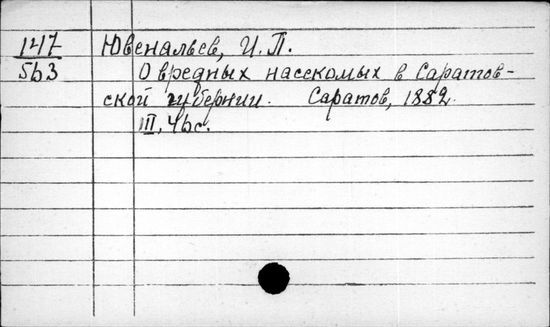 147 Ювенальев, И. П.
563 О вредных насекомых в Саратов-
ской губернии. Саратов, 1882.
III, 46 с.